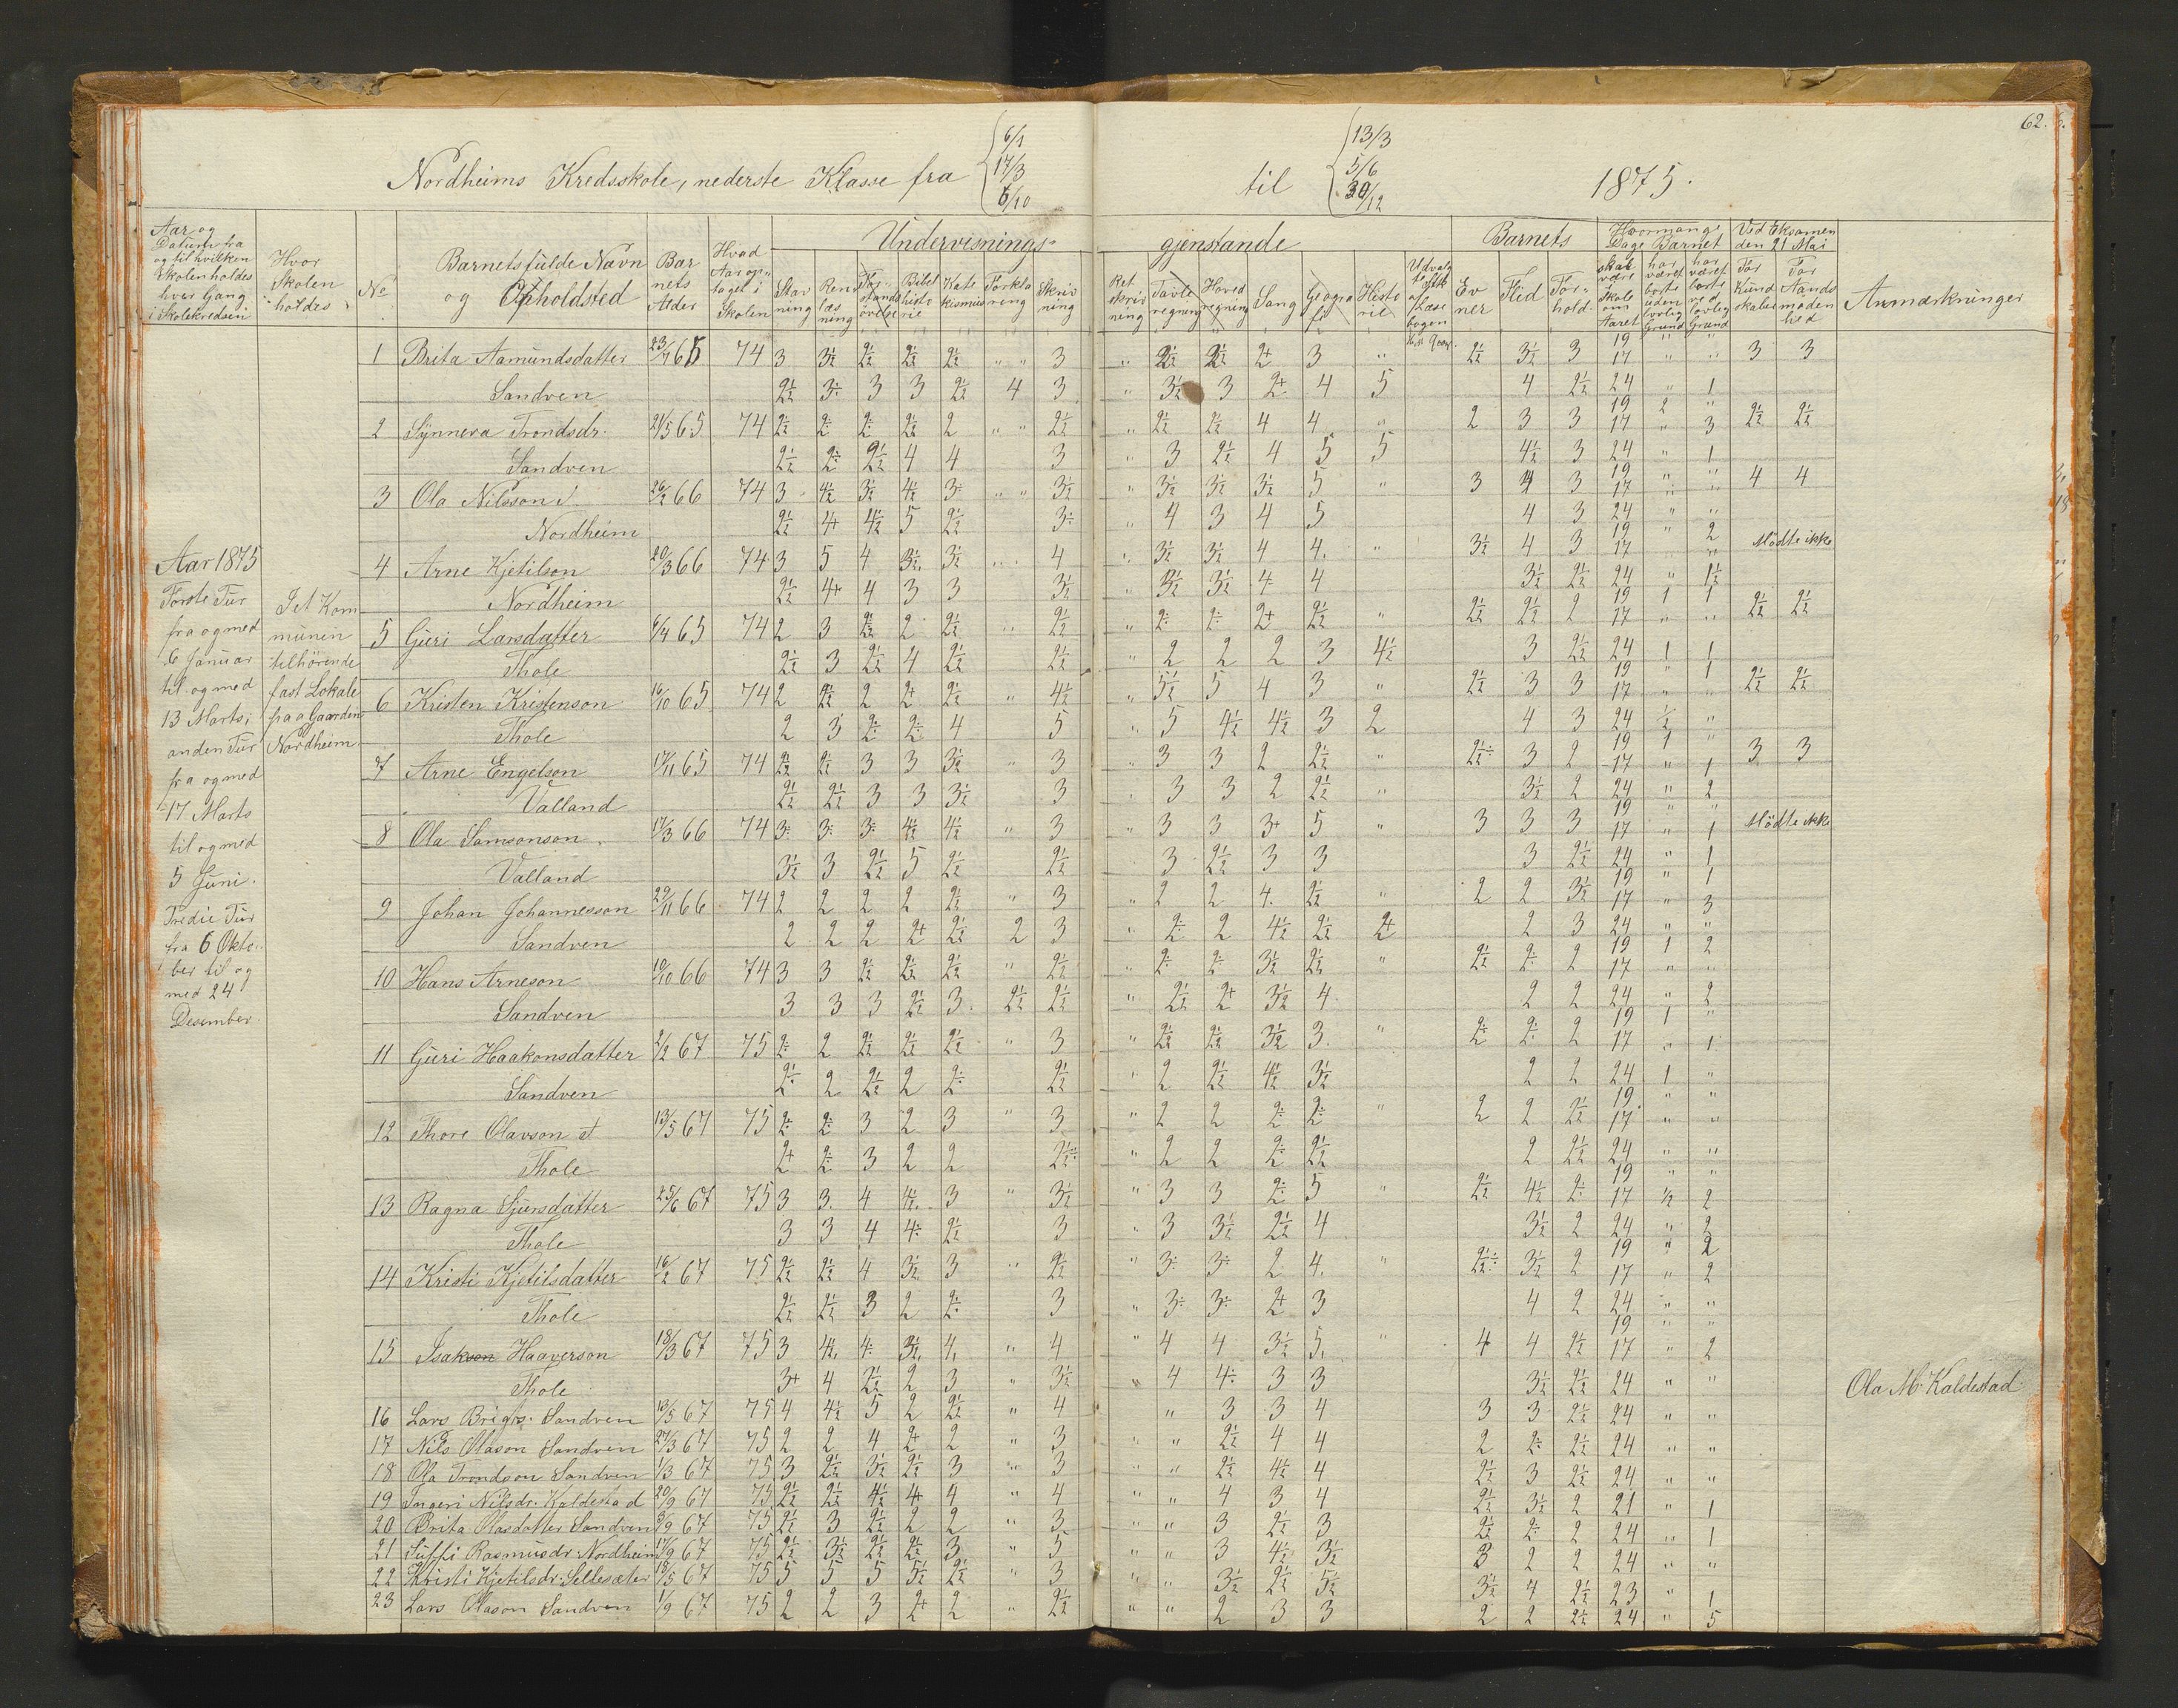 62.
Nordheims Kredsskole, nederste Klasse fra 6/1 17/3 6/10 til 13/3 5/6 1875.
Aar og Datum fra og til hvilken Skolen holdes hver Gang i Skolekredsen
Hvor Skolen holdes
No
Barnets fulde Navn og Opholdsted
Barnets Alder
Hvad Aar optaget i Skolen
Undervisnings-gjenstande
Stavning
Renlæsning
Forstandsøvelse
Bibelhistorie
Katekismus
Forklaring
Skrivning
Retskrivning
Tavleregning
Hovedregning
Sang
Geografi
Historie
Udvalgte Stk af Læsebogen
Barnets
Evner
Flid
Forhold
Hvormange Dage Barnet
skal være i Skole om Aaret
har været borte uden lovlig Grund
har været borte ved lovlig Grund
Ved Eksamen den 21 Mai
For Kundskaber
For Aandsmodenhed
Anmærkninger
Aar 1875
Første Tur
fra og med
6 Januar
til og med
13 Marts;
anden Tur
fra og med
17 Marts
til og med
5 Juni.
Tredie Tur
fra 6 Okto-
ber til og
med 24
Desember.
I et Kom
munen
tilhörende
fast Lokale
paa Gaarden
Nordheim.
1 Brita Aamundsdatter 23/7 65 74 3 3½ 2½ 2½ 2½ " " 3 " 2½ 2½ 2+ 3 " 2½ 3½ 3 19 17 " " 3 3
Sandven 2½ 3÷ 3 3 2½ 4 3 " 3½ 3 2+ 4 5 4 2½ 24 " 1
2 Synneva Trondsdr. 21/5 65 74 2½ 2÷ 2÷ 2½ 2 " " 2½ " 2½ 2½ 4 4 " 2 3 3 19 17 2 " " 3 2½ 2½
Sandven 2½ 2÷ 2½ 4 4 3 " 3 2½ 4 5 5 4½ 3 24 " 1
3 Ola Nilsson 26/2 66 74 3 4½ 3½ 4½ 3÷ " " 3½ " 3½ 3½ 3½ 5 " 3 4 3 19 17 " " 4 4
Nordheim 2½ 4+ 4½ 5 2½ 3÷ " 4 3 4 5 4 3 24 " "
4 Arne Kjetilson 20/3 66 74 3 5 4 3½ 3½ " " 4 " 3½ 3½ 4 4 " 3½ 4 3 19 17 " 2 " Mödte ikke
Nordheim 2½ 4+ 4 3 3 3½ " 3½ 3½ 4 4 3½ 2½ 24 " 1½
5 Guri Larsdatter 6/4 65 74 2 3 2½ 2 2½ " 2½ " 2÷ 2÷ 2+ 2½ " 2½ 2½ 2 19 17 1 1 " " 2½ 2½
Thole 2½ 3 2½ 4 2½ 2½ " 2 2 2 3 4½ 3 2½ 24 1 1
6 Kristen Kristenson 16/10 65 74 2 2½ 2 2+ 2½ " 4½ " 5½ 5 4 3 " 2½ 3 3 19 17 " 1 " " 2½ 2½
Thole 2 3 2÷ 2÷ 4 5 " 5 4½ 4½ 3 2 4 3 24 ½ "
7 Arne Engelson 17/11 65 74 2½ 2½ 3 3 3½ " 3 " 3 3 2 2½ " 2½÷ 3 2 19 17 1 " " 1 3 3
Valland 2½ 2½ 3 3 3½ 3 " 3 3 2 2½ " 3½ 2 24 " 2
8 Ola Samsonson 17/3 66 74 3÷ 3÷ 3÷ 4½ 4½ " 3 " 3 3 3+ 5 " 3 3 3 19 17 " " " 1 Mödte ikke
Valland 3½ 3 2½ 5 2½ 2½ 3 2½ 3 3 3 2½ 24 " 1
9 Johan Johannesson 29/11 66 74 2 2 2 2 2½ " 3 " 2 2 4 2½ " 2 2 3½ 19 17 " 1 " 3
Sandven 2 2 2 2+ 2½ 2 3 " 2÷ 2 4½ 2½ 2+ 2 3 24 " "
10 Hans Arneson 10/10 66 74 3 3 2½ 2½ 2½ " 2½ " 2÷ 2÷ 3½ 2½ " 2½ 2÷ 2 19 17 1 2 " "
Sandven 3 3 3 2½ 3 2½ 2½ " 2½ 2+ 3½ 4 2 2 24 " 2
11 Guri Haakonsdatter 2/2 67 75 2÷ 2 2½ 2½ 2½ " 3 " 2½ 2½ 3½ 3 " 2÷ 2÷ 2 19 17 1 " " 1
Sandven 2½ 2 2½ 2 2÷ 2½ " 2 2½ 4½ 3½ 2 2 24 1 "
12 Thore Olavson 13/5 67 75 2÷ 2÷ 3 2 3 " 3 " 2 2 2÷ 2÷ " 2 2 2½ 19 17 " " " "
Thole 2+ 2÷ 3 2 2 2½÷ " 2 2 2÷ 2½ 2 2½ 24 " "
13 Ragna Sjursdatter 25/6 67 75 3 3 4 4½ 3 " 3½ " 3 3 2÷ 5 " 2½ 4½ 2÷ 19 17 " " ½ 2
Thole 3 3 4 4÷ 2½ 3 " 3 3½ 2½ 4 3½ 2 24 " 2
14 Kristi Kjetilsdatter 16/2 67 75 2½ 2½ 4 3½ 3 " 2½ " 3÷ 3÷ 2 4 " 2½÷ 3½ 2 19 17 " 2 " 2
Thole 2½ 2½ 3 2 2÷ 3 " 3÷ 3÷ 2+ 3 4 2 24 " "
15 Isakson Haaverson 18/3 67 75 3 4½ 4÷ 3½ 4 " 4 " 4 4 3½ 5 " 4 4 2½ 19 17 " " " 2
Thole 3+ 4 2½ 2 3 " 3½ " 4 4÷ 3 3 3½ 2½ 24 " "
Ola M. Kaldestad.
16 Lars Brigts. Sandven 13/5 67 75 4 4½ 5 2 2½ " 4 " 3 3 4 3 3 2½ 24 " "
17 Nils Olason Sandven 27/3 67 75 2 2 4 2+ 2 " 3 " " 2½ 4 4 2 2÷ 2½ 24 " "
18 Ola Trondson Sandven 1/3 67 75 3 2½ 3½ 2½ 3 " 3 " " 2½ 4½ 4 2½ 3 2½ 24 " "
19 Ingeri Nilsdr. Kaldestad 20/9 67 75 2½ 2½ 4½ 4 4 " 4 " " 4 3 4 2½ 3½ 2 21 " 1
20 Brita Olasdatter Sandven 3/9 67 75 2½ 3 2½ 2 2 " 3 " " 3 2½ 3 2½ 2÷ 2 24 " 1
21 Suffi Rasmusdr. Nordheim 17/9 67 75 2½ 3½ 2½ 2½ 3 " 5 " " 3 4½ 3½ 3 2 2 24 " "
22 Kristi Kjetilsdr. Sellesæter 18/5 67 75 5 5 5 5½ 2½ " 3 " " 3½ 2½ 5½ 3½ 4 2½ 23 " 1
23 Lars Olason Sandven 1/9 67 75 2 2 3 2+ 2 " 2½ " " 2 3 3 2 2 2½ 24 " 5